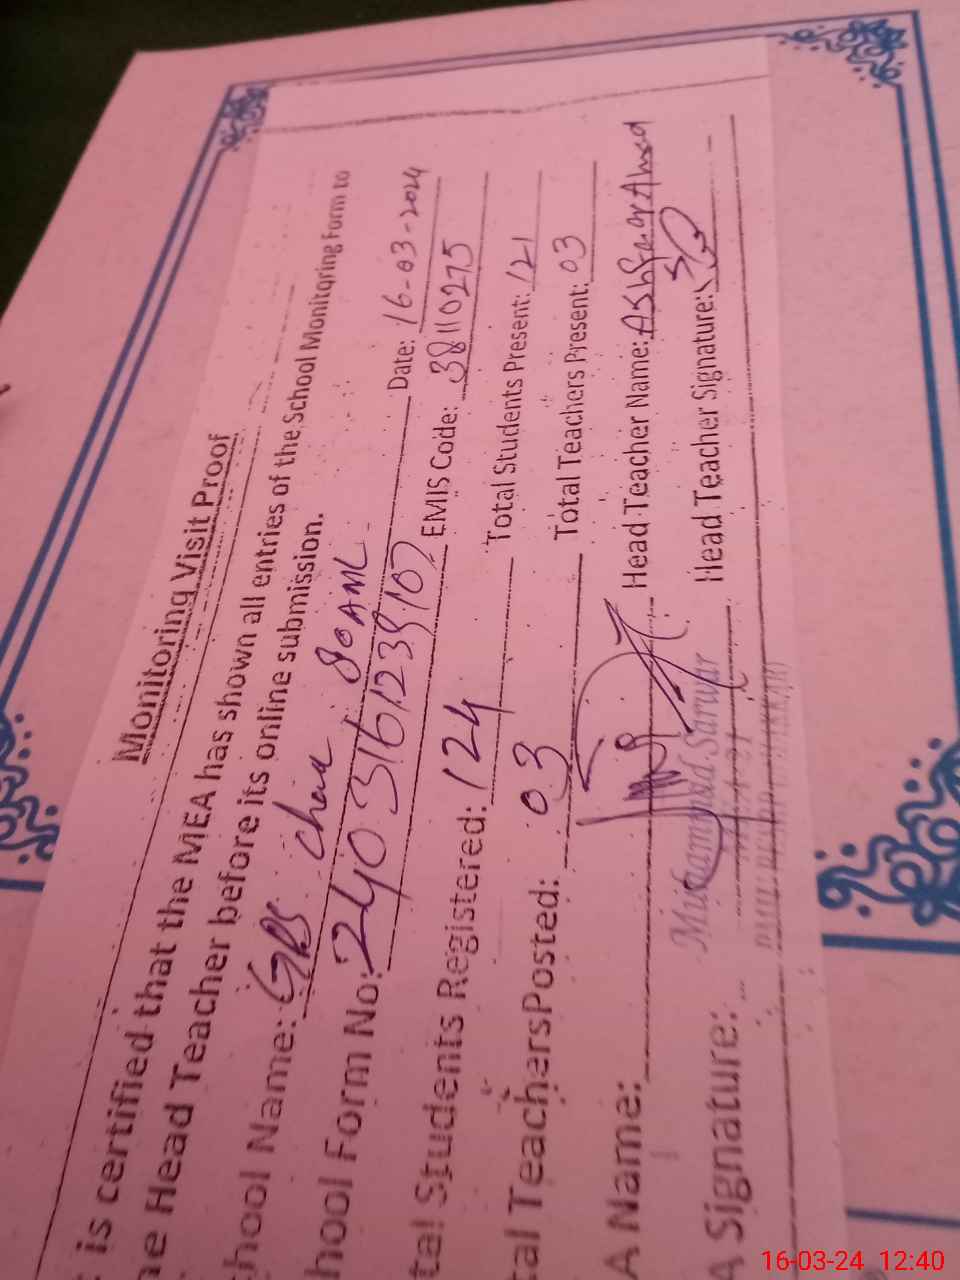 Monitoring Visit Proof
is certified that the MEA has shown all entries of the School Monitoring Form to
he Head Teacher before its online submission.
chool Name: GPS Chak 80 AML Date: 16-03-2024
chool Form No: 240316123910 EMIS Code: 38110275
tal Students Registered: 124 Total Students Present: 121
tal TeachersPosted: 03 Total Teachers Present: 03
A Name: Head Teacher Name: Ashfaq Ahmad
A Signature: Head Teacher Signature:
Muhammad Sarwar
16-03-24 12:40